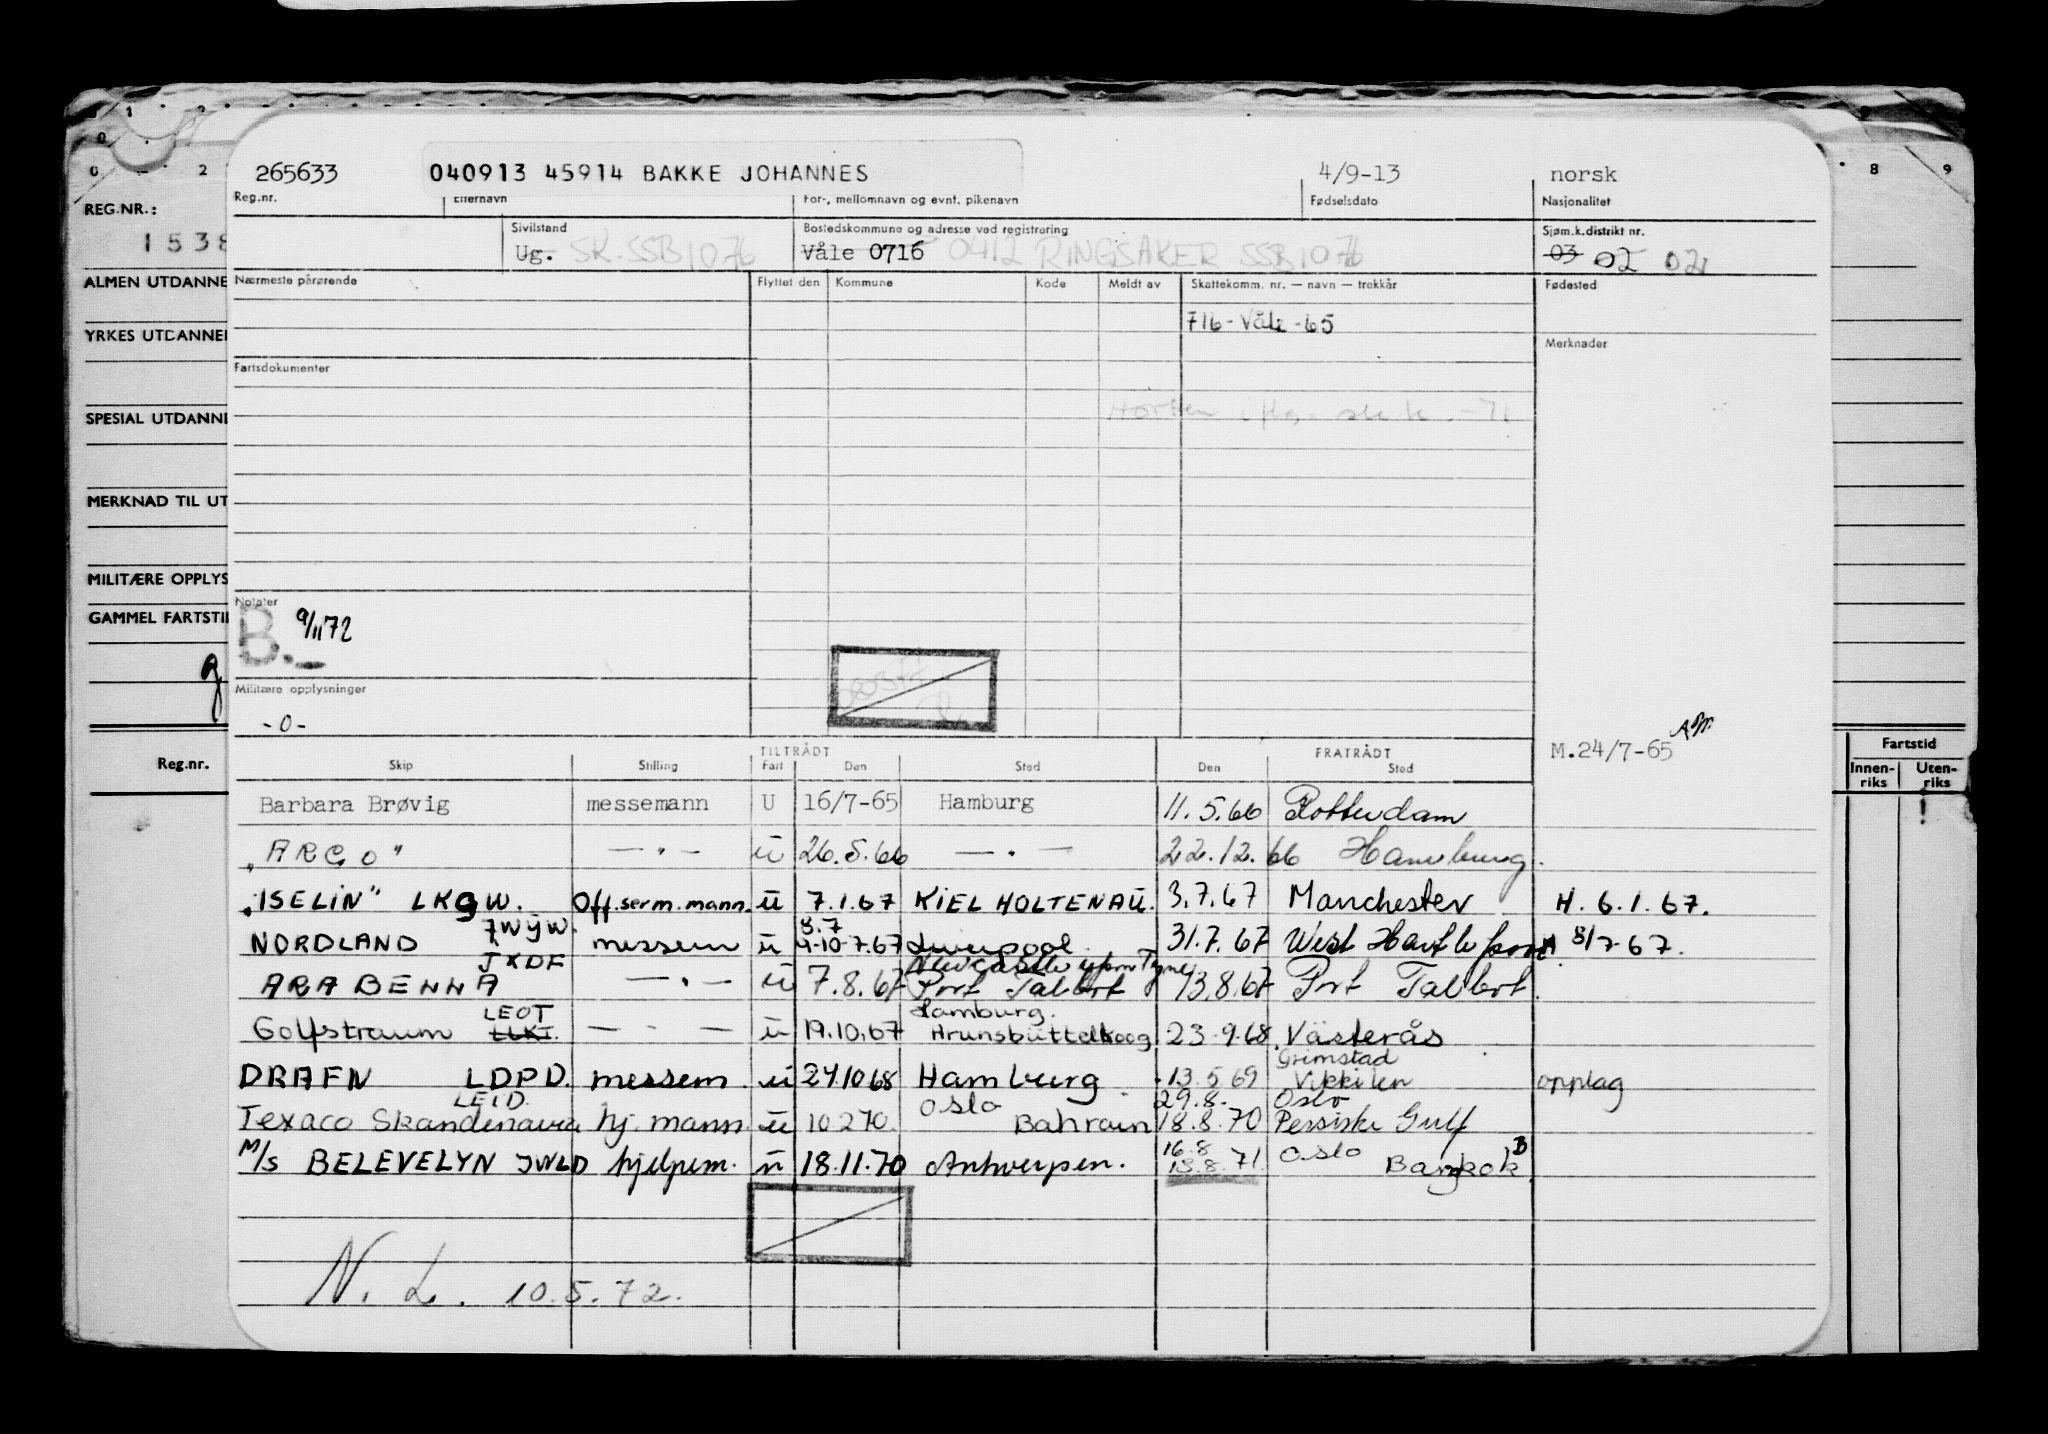 265633 040913 45914 BAKKE JOHANNES 4/9-13 norsk
Reg.nr. Etternavn For-, mellomnavn og evnt. pikenavn Fødselsdato Nasjonalitet
REG.NR.:
1538
Sivilstand Bostedskommune og adresse ved registrering Sjøm.k.distrikt nr.
Ug. SK.SSB1076 Våle 0716 0412 RINGSAKER SSB1076 03 02 02
ALMEN UTDANNE
Nærmeste pårørende Flyttet den Kommune Kode Meldt av Skattekomm. nr. — navn — trekkår Fødested
716-Våle-65
YRKES UTDANNE
Merknader
Fartsdokumenter
SPESIAL UTDANN
Horten -71
MERKNAD TIL UT
MILITÆRE OPPLYS
GAMMEL FARTSTI
Notater
B. 9/11 72
Militære opplysninger
-0-
Reg.nr.
TILTRÅDT FRATRÅDT M.24/7-65
Skip Stilling Fart Den Sted Den Sted
Fartstid
Innen-riks Uten-riks
Barbara Brøvig messemann U 16/7-65 Hamburg 11.5.66 Rotterdam
"ARGO" — " — u 26.5.66 — " — 22.12.66 Hamburg.
"ISELIN" LKGW. Off.serm.mann. u 7.1.67 KIEL HOLTENAU. 3.7.67 Manchester H. 6.1.67.
JWYW. 3.7
NORDLAND messem u 4-10-7.67 Liverpool. 31.7.67 West Hartlepool A 8/7-67.
JXDF Newcastle upon Tyne
ARABENNA — " — u 7.8.67 Port Talbot 13.8.67 Port Talbot.
LEOT Hamburg.
Golfstraum LLKT. — " — u 19.10.67 Brunsbüttelkoog 23.9.68 Västerås
Grimstad
DRAFN LDPD. messem. u 24.10.68 Hamburg 13.5.69 Vikkilen opplag
LEID. Oslo 29.8. Oslo
Texaco Skandinavia hj. mann. u 10.2.70. Bahrain 18.8.70 Persiske Gulf
16.8 Oslo
M/S BELEVELYN JWLD hjelpem. u 18.11.70 Antwerpen. 13.8.71. Bangkok B
N. L. 10.5.72.